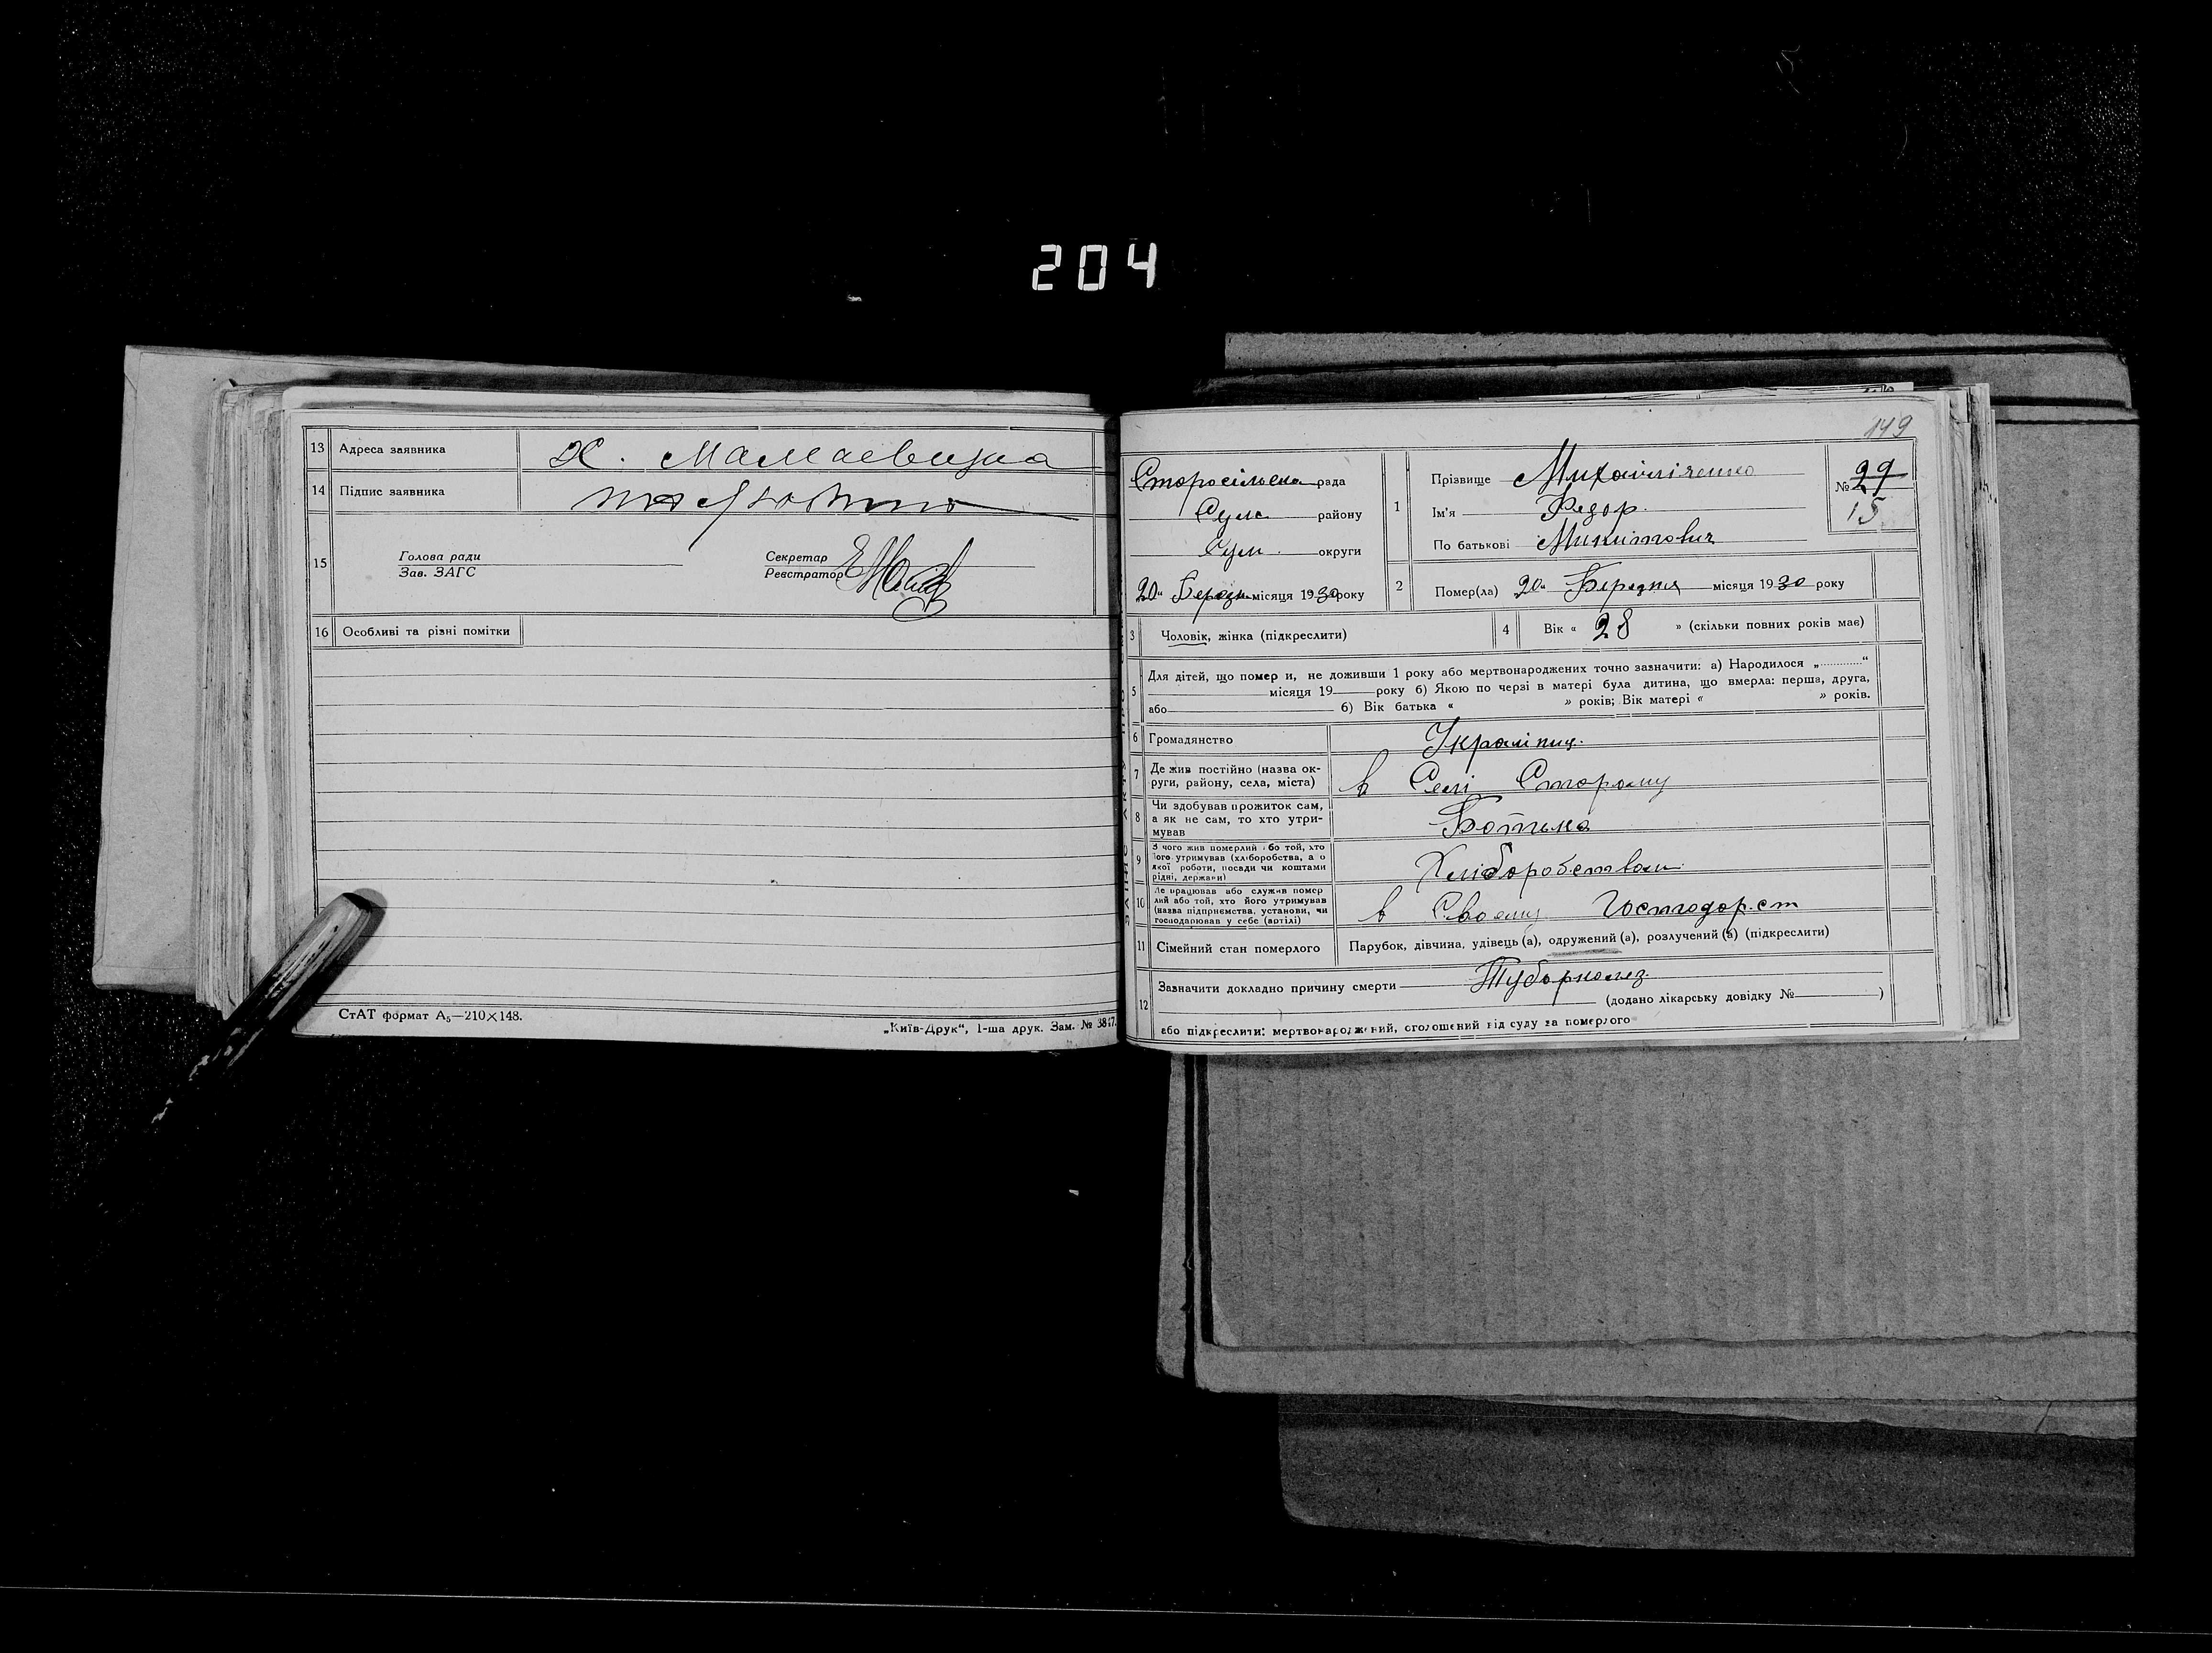 204
13 Адреса заявника х. Мамаевщина
14 Підпис заявника
15 Голова ради
Зав. ЗАГС
Секретар
Реєстратор
16 Особливі та різні помітки
СтАТ формат А5—210×148.
„Київ-Друк“, 1-ша друк. Зам. № 3817.
149
Старосільська рада
Сум району
Сум. округи
20 Березн місяця 1930 року
1 Прізвище Михайліченко
Ім'я Федор.
По батькові Микитович
№ 29
15
2 Помер(ла) 20 Березня місяця 1930 року
3 Чоловік, жінка (підкреслити)
4 Вік « 28 » (скільки повних років має)
5 Для дітей, що помер и, не доживши 1 року або мертвонароджених точно зазначити: а) Народилося „ “
місяця 19 року б) Якою по черзі в матері була дитина, що вмерла: перша, друга,
або б) Вік батька « » років; Вік матері « » років.
6 Громадянство Українец.
7 Де жив постійно (назва ок-
руги, району, села, міста) в Селі Старому
8 Чи здобував прожиток сам,
а як не сам, то хто утри-
мував Батько
9 З чого жив померлий або той, хто
його утримував (хліборобства, а о
якої роботи, посади чи коштами
рідні, держави) Хліборобством
10 Де працював або служив помер
лий або той, хто його утримував
(назва підприємства, установи, чи
господарював у себе (вотілі) в Своему Господар.ст
11 Сімейний стан померлого Парубок, дівчина, удівець (а), одружений (а), розлучений (а) (підкреслити)
12 Зазначити докладно причину смерти Туборкольоз.
(додано лікарську довідку № )
або підкреслити: мертвонароджений, оголошений від суду за померлого